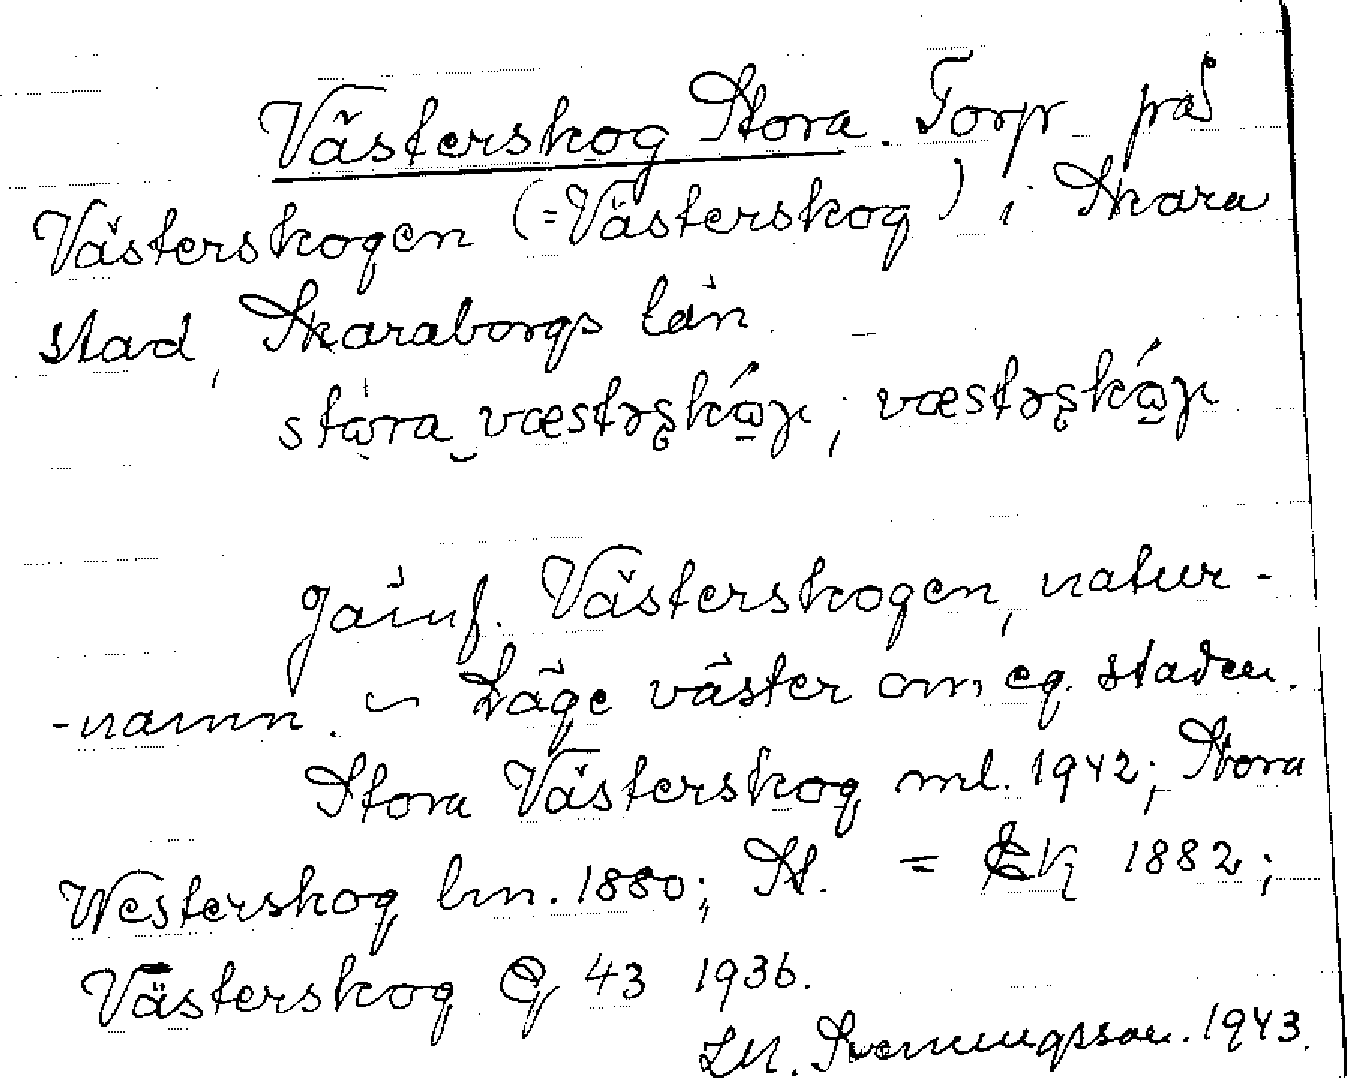 Västerskog Stora. Torp på
Västerskogen (=Västerskog), i Skara
stad, Skaraborgs län.
stωra væstɘʂkωγ; væstɘʂkωγ
Jämf. Västerskogen, natur-
-namn. ~ Läge väster om eg. staden.
Stora Västerskog ml. 1942; Stora
Westerskog lm. 1880; St. = Ek 1882;
Västerskog G 43 1936.
Svenningsson. 1943.